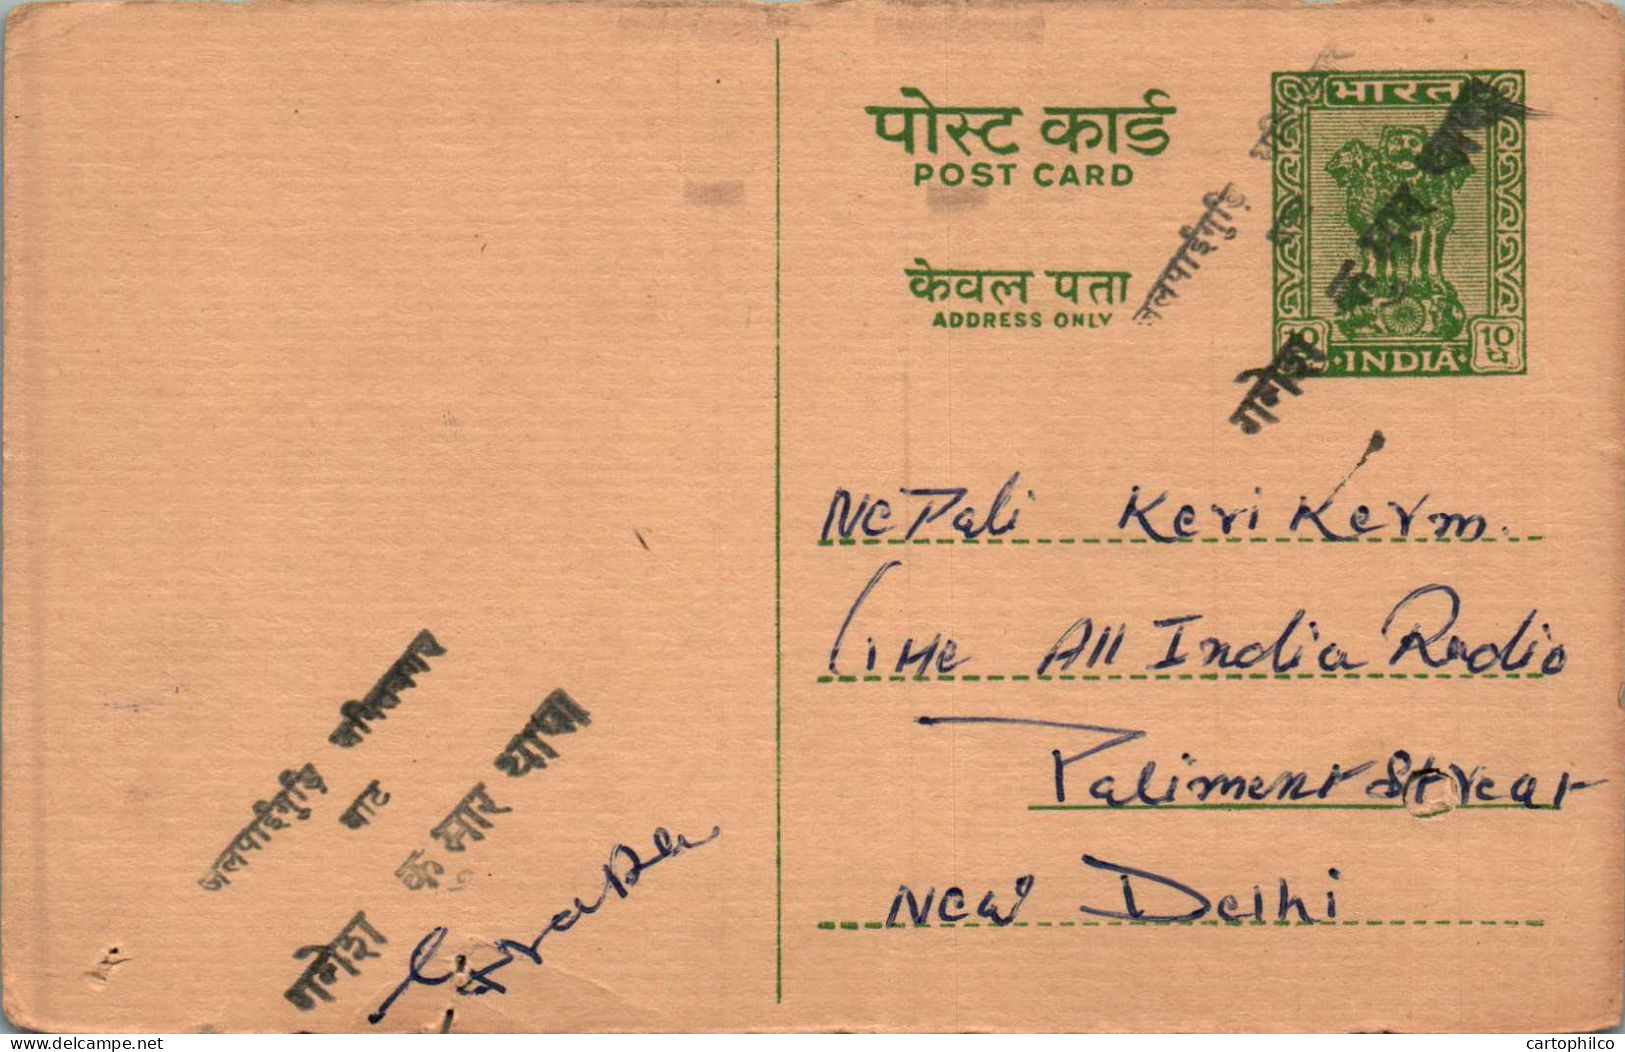 पोस्ट कार्ड
POST CARD
केवल पता
ADDRESS ONLY
भारत
10 · INDIA · 10
जलपाईगुड़ि
गणेश कुमार थापा
NePali Keri Kerm.
All India Radio
Paliment Strear
New Delhi
जलपाईगुड़ि
बाट
गणेश कुमार थापा
www.delcampe.net
cartophilco